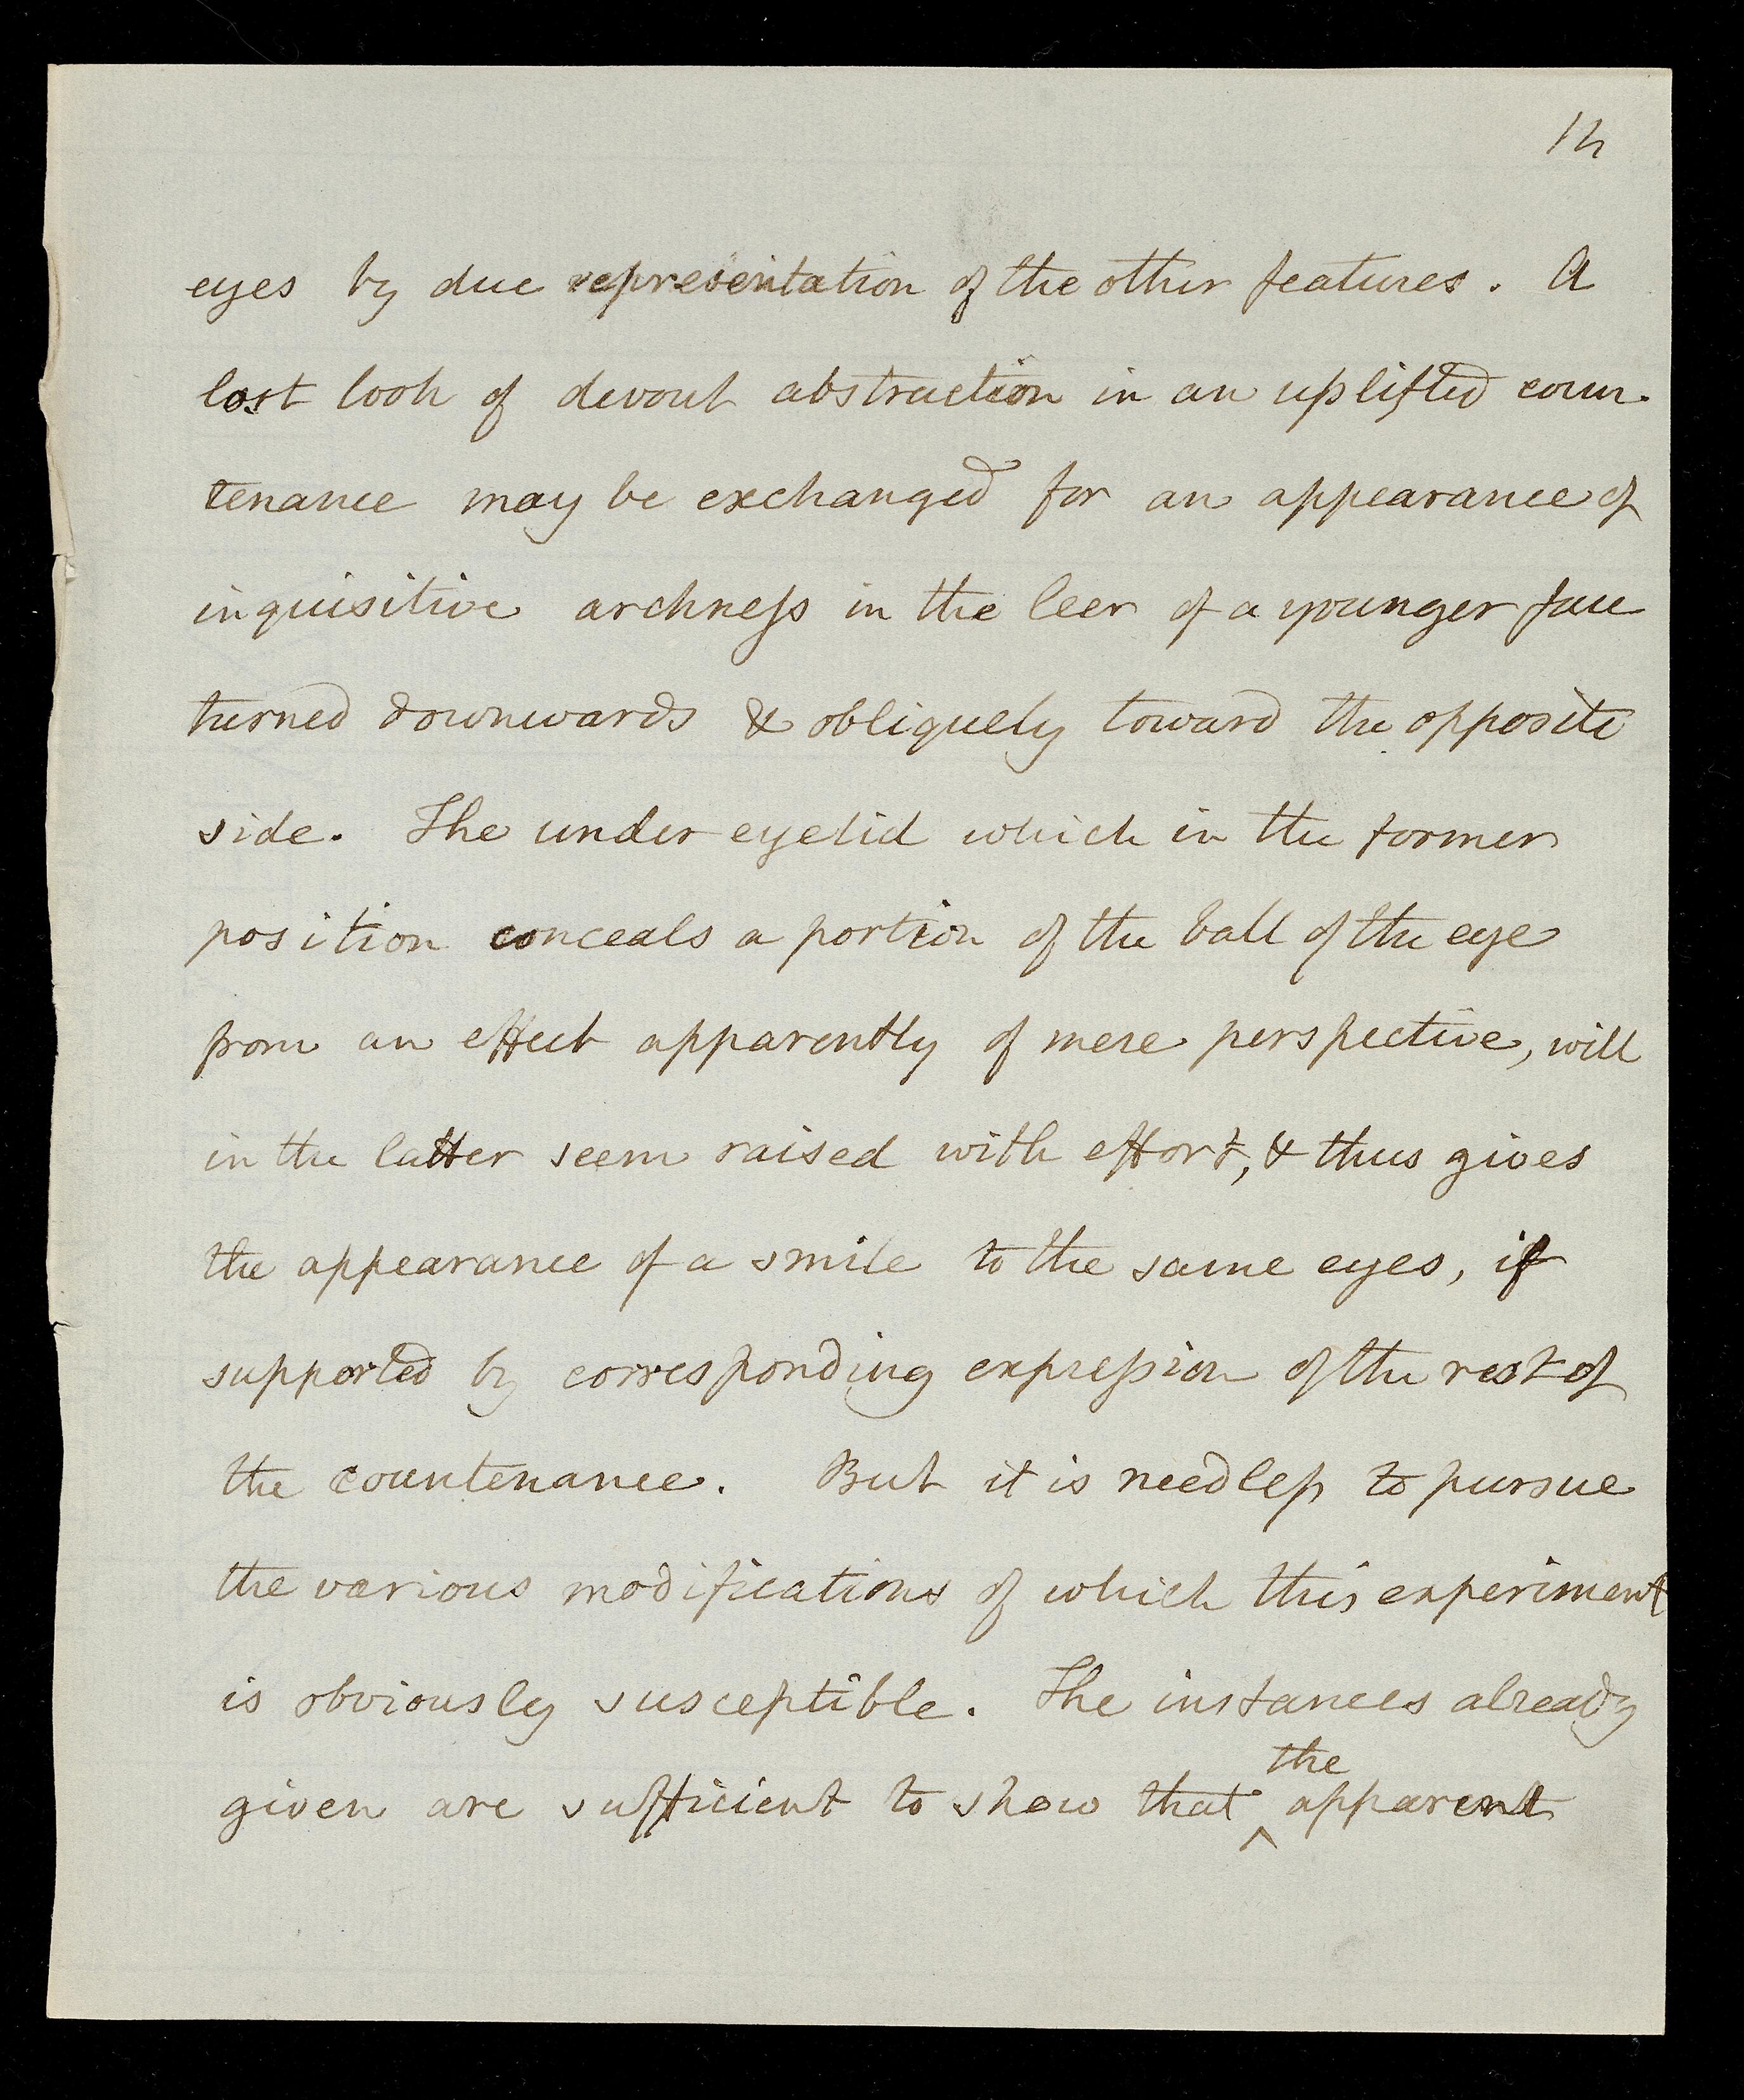 12
eyes by due representation of the other features. A
lost look of devout abstraction in an uplifted coun-
tenance may be exchanged for an appearance of
inquisitive archness in the leer of a younger face
turned downwards & obliquely toward the opposite
side. The under eyelid which in the former
position conceals a portion of the ball of the eye
from an effect apparently of mere perspective, will
in the latter seem raised with effort, & thus gives
the appearance of a smile to the same eyes, if
supported by corresponding expression of the rest of
the countenance. But it is needless to pursue
the various modifications of which this experiment
is obviously susceptible. The instances already
the
given are sufficient to show that ^ apparent